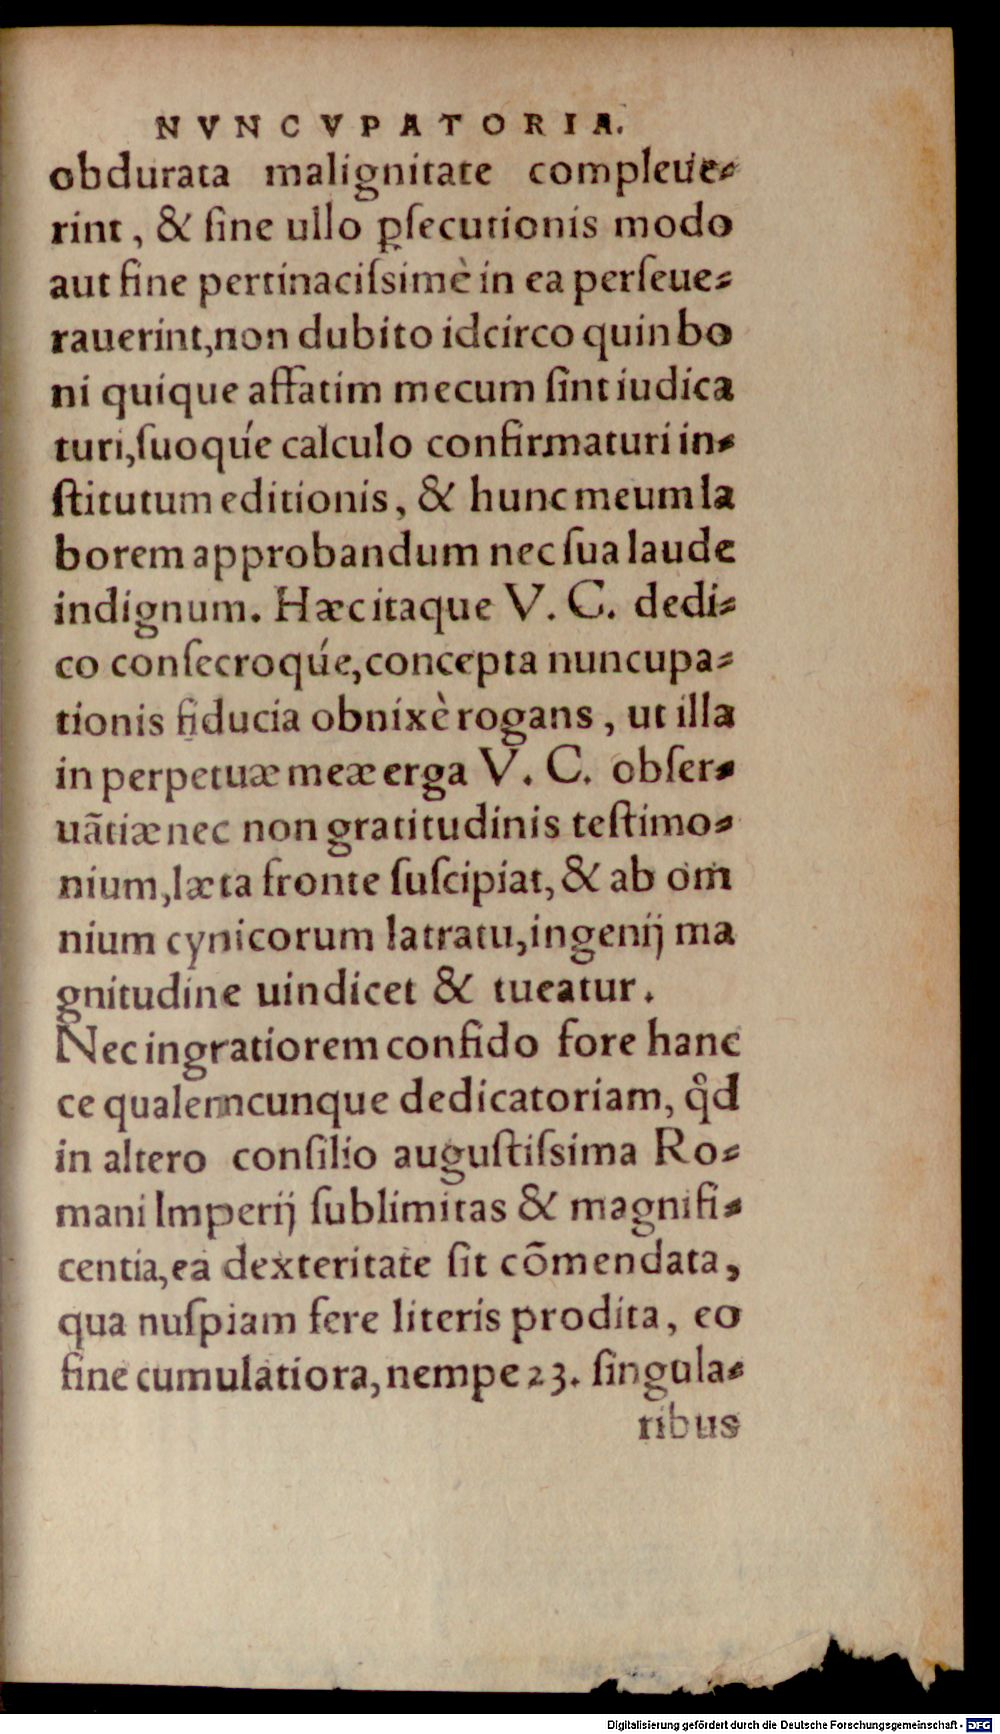 NVNCVPATORIA.
obdurata malignitate compleue⸗
rint, & ſine ullo ꝑſecutionis modo
aut fine pertinaciſsimè in ea perſeue⸗
rauerint,non dubito idcirco quin bo
ni quique affatim mecum ſint iudica
turi,ſuoqúe calculo confirmaturi in⸗
ſtitutum editionis, & hunc meum la
borem approbandum nec ſua laude
indignum. Hæc itaque V. C. dedi⸗
co conſecroqúe,concepta nuncupa⸗
tionis fiducia obnixè rogans, ut illa
in perpetuæ meæ erga V. C. obſer⸗
uãtiæ nec non gratitudinis teſtimo⸗
nium,læta fronte ſuſcipiat, & ab om
nium cynicorum latratu,ingenij ma
gnitudine uindicet & tueatur.
Nec ingratiorem confido fore hanc
ce qualemcunque dedicatoriam, qd̊
in altero conſilio auguſtiſsima Ro⸗
mani Imperij ſublimitas & magnifi⸗
centia,ea dexteritate ſit cõmendata,
qua nuſpiam fere literis prodita, eo
fine cumulatiora,nempe 23. ſingula⸗
ribus
Digitalisierung gefördert durch die Deutsche Forschungsgemeinschaft - DFG